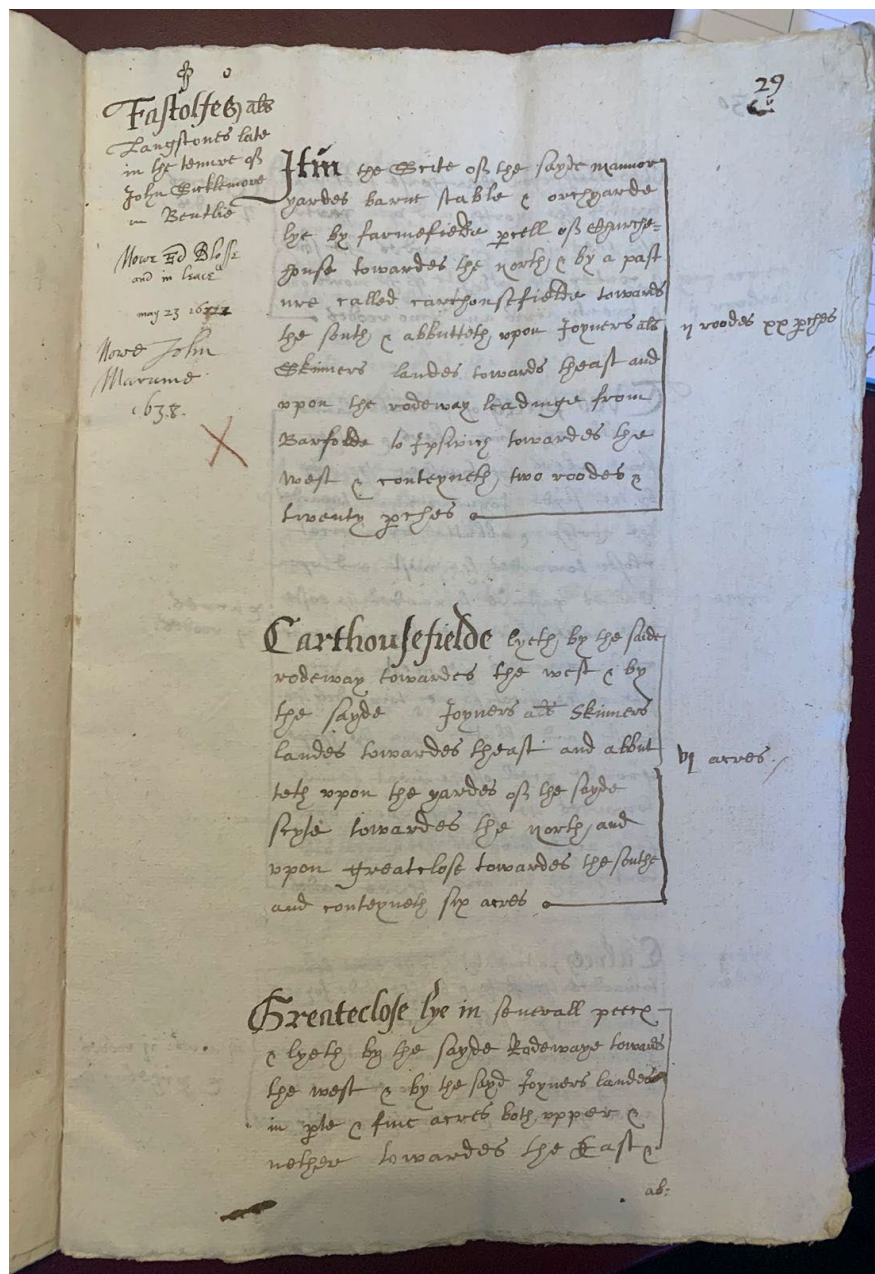 29
Fastolfes als
Langstones late
in the tenure off
John Sicklemore
in Bentlie
Nowe Ed Blosse
and in lease
may 23
Nowe John
1638.
Itm the Scite off the sayde mannor
yardes barne stable & orchyarde
lye by farmefielde pcell off Churche=
house towardes the north, & by a past
ure called carthousefielde towards
the south & abbutteth vpon Joyners als
Skinners landes towards theast and
vpon the rodeway leadinge from
Barfolde to Ipswich towardes the
west & conteyneth two roodes &
twenty pches
ij roodes xx pches
Carthousefielde lyeth by the saide
rodeway towardes the west & by
the sayde Joyners als Skinners
landes towardes theast and abbut
teth vpon the yardes off the sayde
scyte towardes the north, and
vpon greatclose towardes the southe
and conteyneth six acres
vj acres
Greateclose lye in seuerall peeces
& lyeth by the sayde Rodewaye towards
the west & by the sayd Joyners landes
in pte & fiue acres both vpper &
nether towardes the East &
ab: